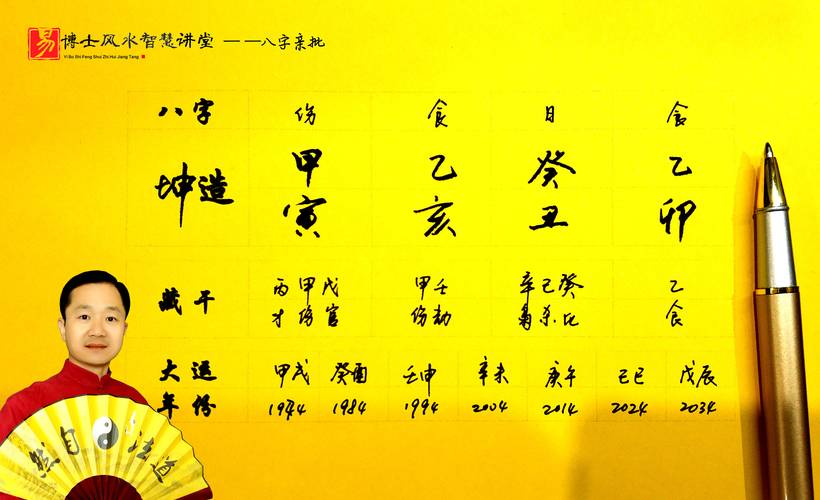 易 博士风水智慧讲堂 ——八字亲批
Yi Bo Shi Feng Shui Zhi Hui Jiang Tang
八字 伤 食 日 食
坤造 甲 乙 癸 乙
寅 亥 丑 卯
藏干 丙甲戊 甲壬 辛己癸 乙
才伤官 伤劫 枭杀比 食
大运 甲戌 癸酉 壬申 辛未 庚午 己巳 戊辰
年份 1974 1984 1994 2004 2014 2024 2034
道法自然